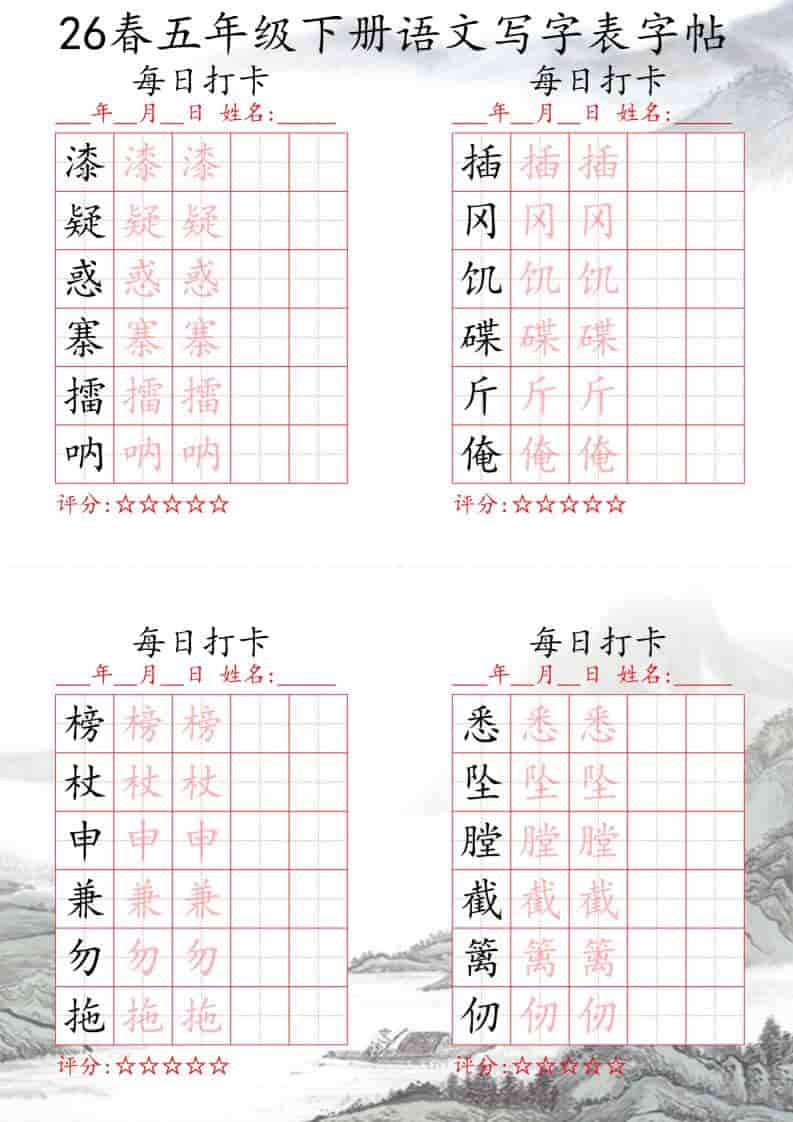 26春五年级下册语文写字表字帖
每日打卡
___年__月__日 姓名:_____
漆漆漆
疑疑疑
惑惑惑
寨寨寨
擂擂擂
呐呐呐
评分:☆☆☆☆☆
每日打卡
___年__月__日 姓名:_____
插插插
冈冈冈
饥饥饥
碟碟碟
斤斤斤
俺俺俺
评分:☆☆☆☆☆
每日打卡
___年__月__日 姓名:_____
榜榜榜
杖杖杖
申申申
兼兼兼
勿勿勿
拖拖拖
评分:☆☆☆☆☆
每日打卡
___年__月__日 姓名:_____
悉悉悉
坠坠坠
膛膛膛
截截截
篱篱篱
仞仞仞
评分:☆☆☆☆☆